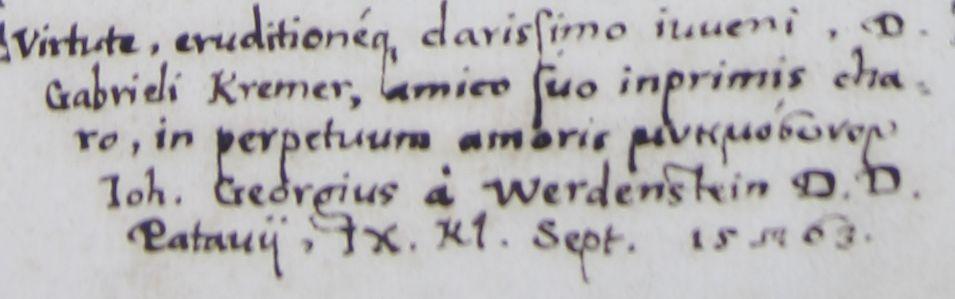 Virtute, eruditioneq, clarissimo iuueni, D.
Gabrieli Kremer, amico suo inprimis cha-
ro, in perpetuum amoris μνημόσυνον
Ioh. Georgius à Werdenstein D. D.
Patauij, IX. Kl. Sept. 1563.